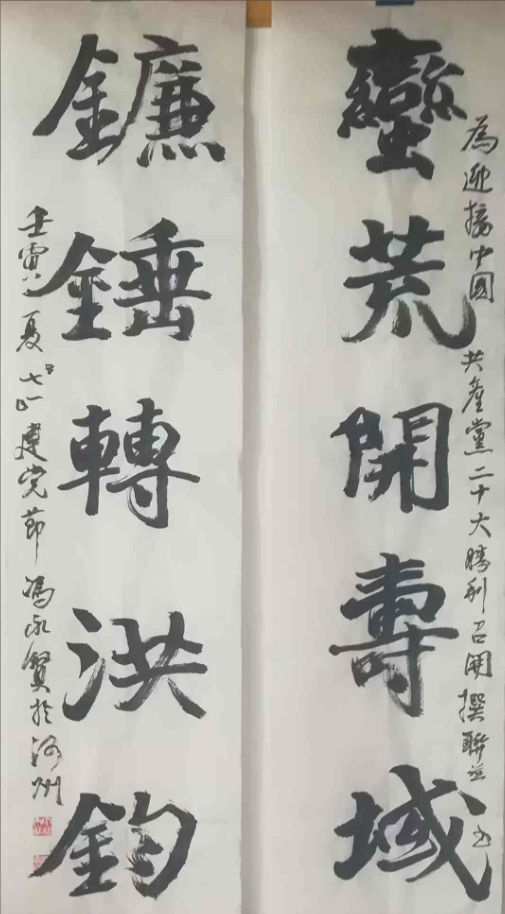 為迎接中國共產黨二十大勝利召開撰聯並書
蠻荒開壽域
鐮錘轉洪鈞
壬寅夏七一建党節馮永賢於河州